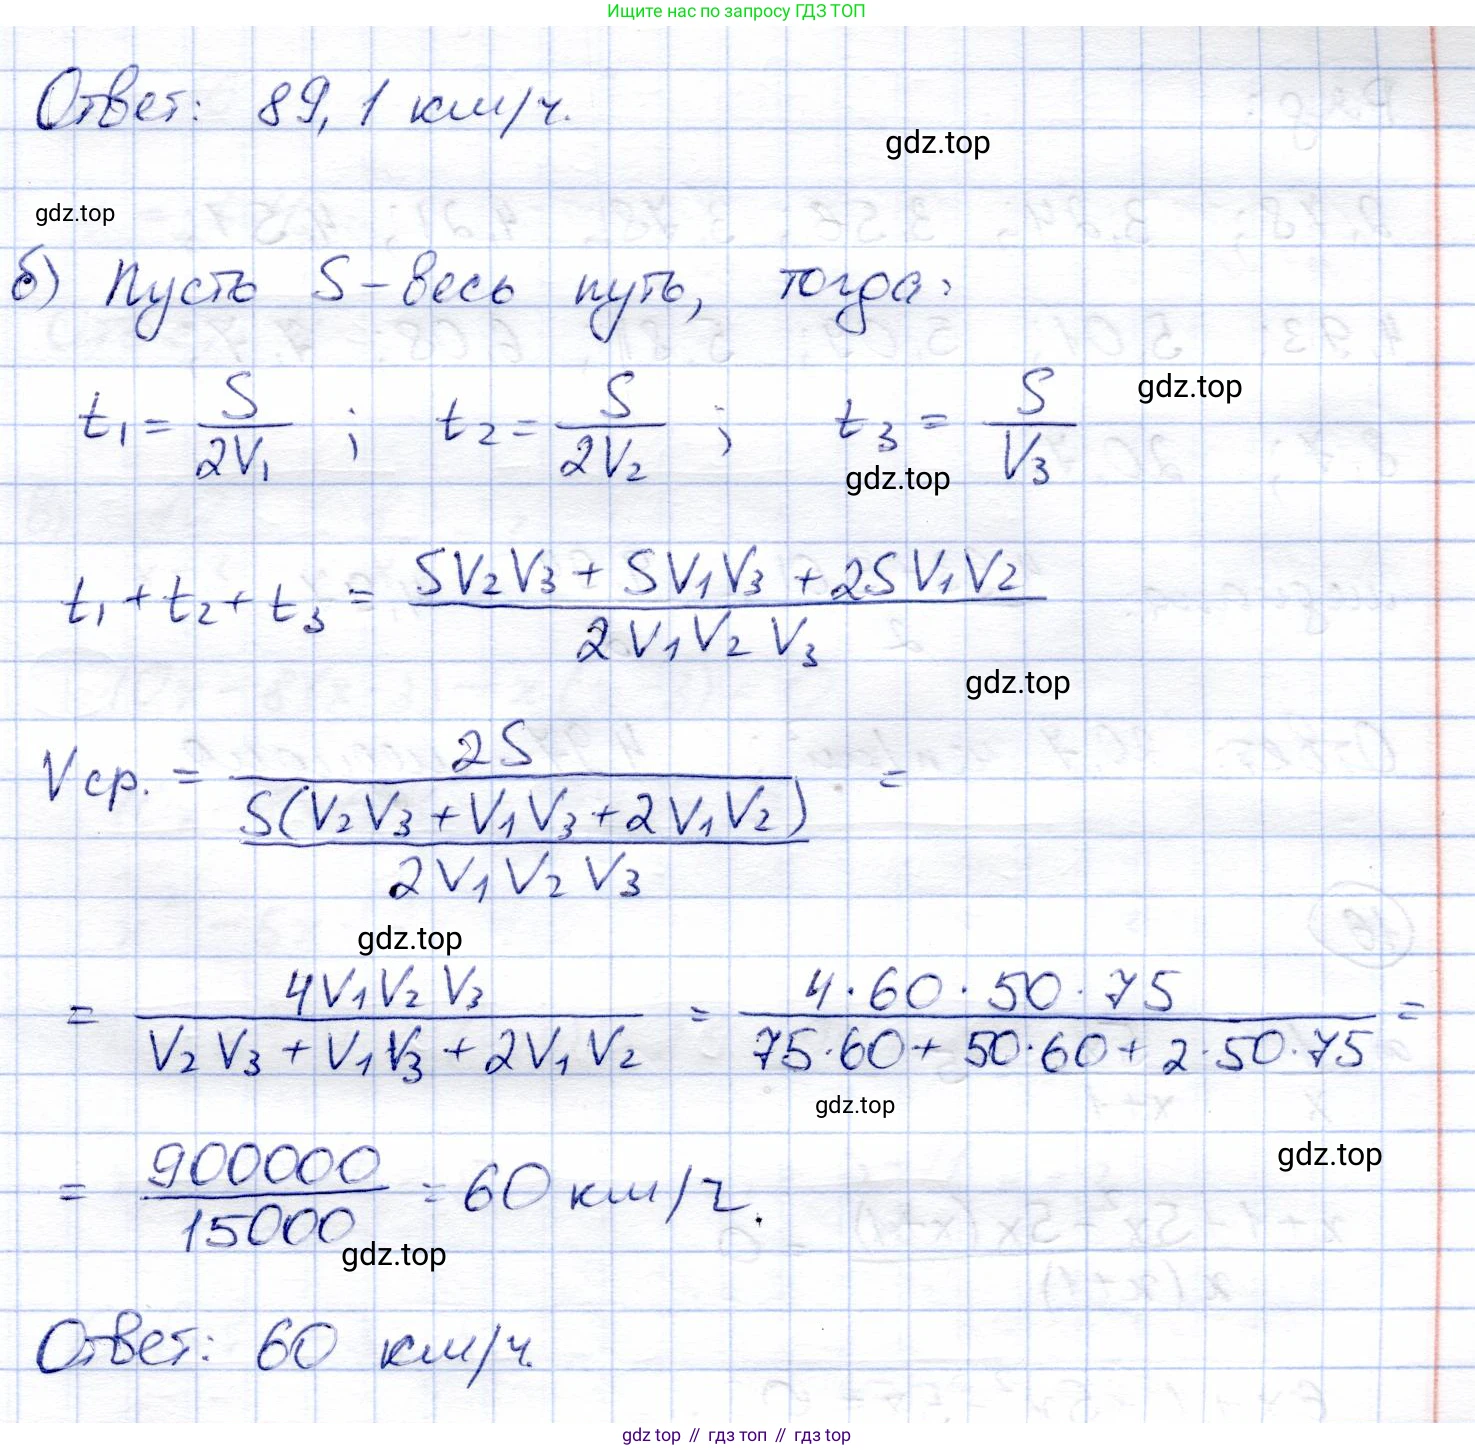 Ищите нас по запросу ГДЗ ТОП
Ответ: 89,1 км/ч.
gdz.top
gdz.top
б) Пусть S - весь путь, тогда:
t₁ = S/(2V₁) ; t₂ = S/(2V₂) ; t₃ = S/V₃
gdz.top
gdz.top
t₁ + t₂ + t₃ = (SV₂V₃ + SV₁V₃ + 2SV₁V₂)/(2V₁V₂V₃)
gdz.top
Vср. = 2S/(S(V₂V₃ + V₁V₃ + 2V₁V₂)/(2V₁V₂V₃)) =
gdz.top
= 4V₁V₂V₃/(V₂V₃ + V₁V₃ + 2V₁V₂) = (4·60·50·75)/(75·60 + 50·60 + 2·50·75) =
gdz.top
gdz.top
= 900000/15000 = 60 км/ч.
gdz.top
Ответ: 60 км/ч.
gdz.top // гдз топ // гдз top